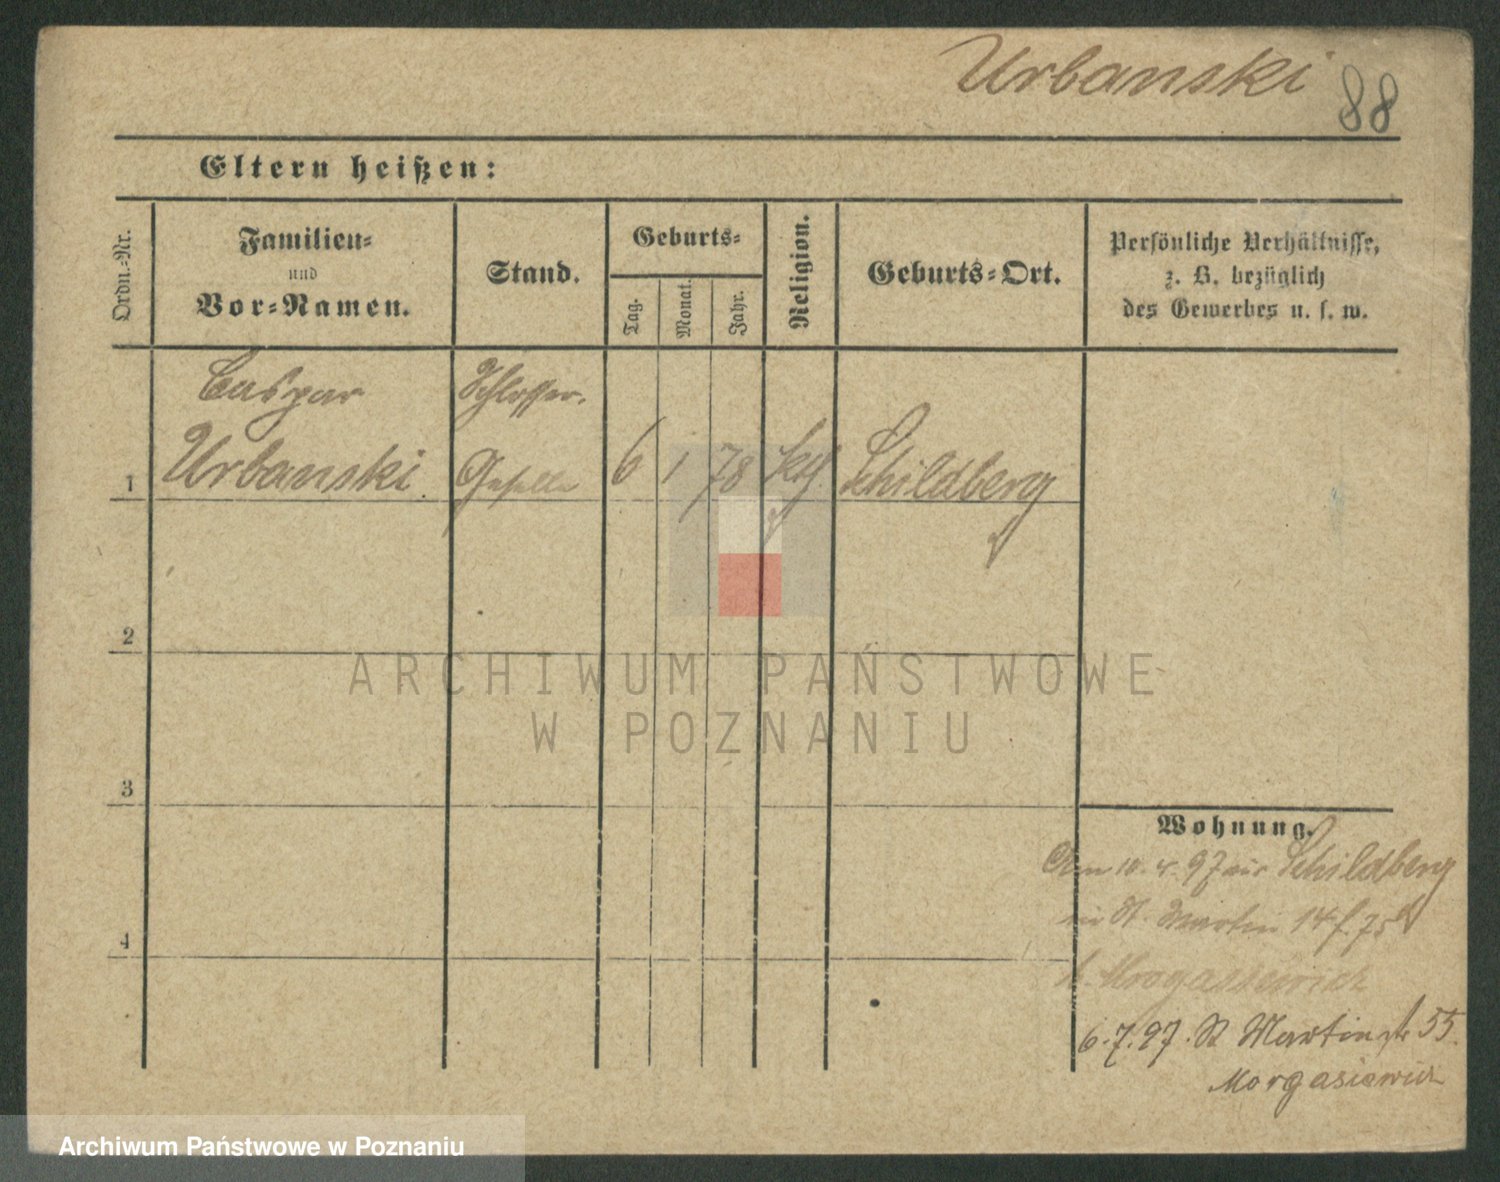 Urbanski 88
Eltern heißen:
Ordn.-Nr.
Familien-
und
Vor-Namen.
Stand.
Geburts-
Tag.
Monat.
Jahr.
Religion.
Geburts-Ort.
Persönliche Verhältnisse,
z. B. bezüglich
des Gewerbes u. s. w.
Caspar Schlosser.
1 Urbanski Geselle 6 1 78 kth Schildberg
2
3
4
Wohnung.
Am 10. 4. 97 aus Schildberg
St. Martin 14
Morgasiewicz
6.7.97. St Martinstr 55.
Morgasiewicz
ARCHIWUM PAŃSTWOWE
W POZNANIU
Archiwum Państwowe w Poznaniu